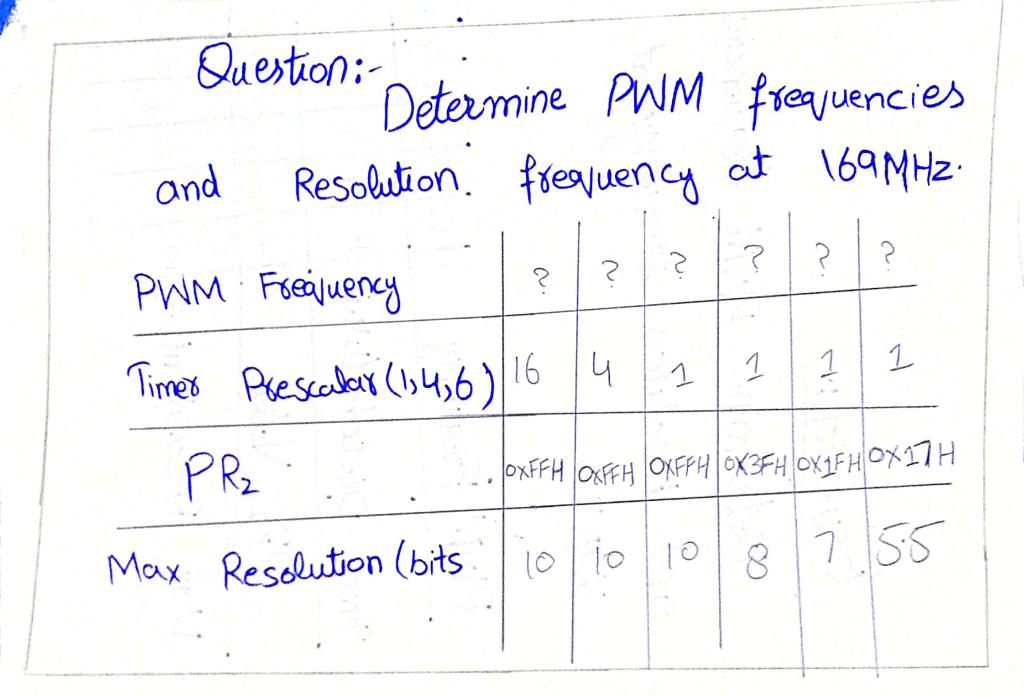 Question:-
Determine PWM frequencies
and Resolution. frequency at 169MHz.
PWM Frequency ? ? ? ? ? ?
Timer Prescalar (1,4,6) 16 4 1 1 1 1
PR2 0XFFH 0XFFH 0XFFH 0X3FH 0X1FH 0X17H
Max Resolution (bits 10 10 10 8 7 5.5